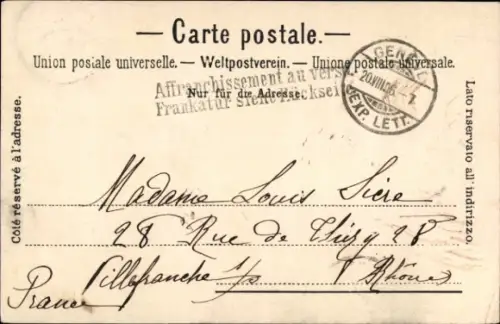 — Carte postale. —
Union postale universelle. — Weltpostverein. — Unione postale universale.
Affranchissement au verso
Frankatur siehe Rückseite
Nur für die Adresse.
GENÈVE
20.VIII.05 - 7
EXP. LETT.
Côté réservé à l'adresse.
Lato riservato all'indirizzo.
Madame Louis Sicre
28 Rue de Thizy 28
Villefranche s/s Rhône
France